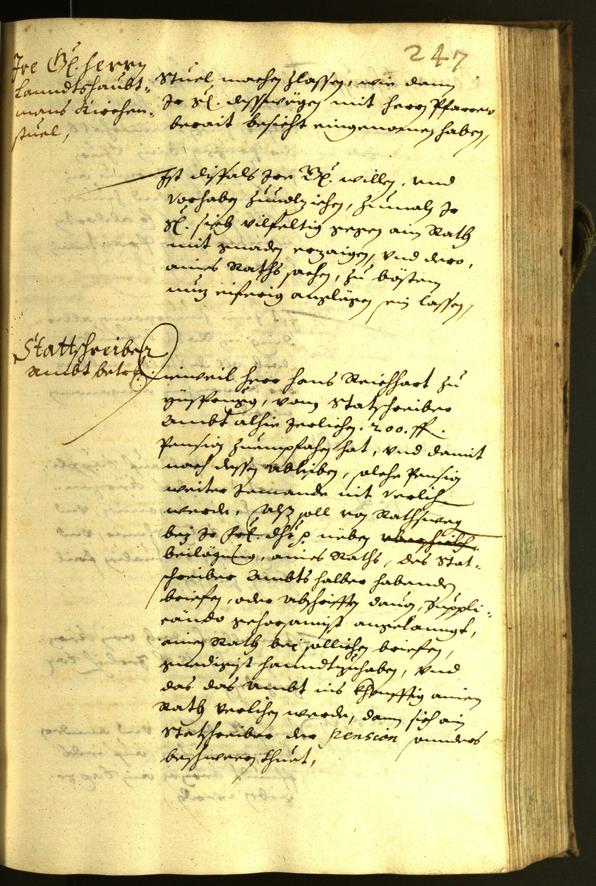 247
Ire Gl. herrn
Lanndtshaubt-
mans Kirchen-
stuel,
Stuel machen zlassen, wie dann
Ir Gl. desswegen mit herrn Pfarrer
berait besicht eingenomen haben,
Ist disfals Irer Gl. willen, und
vorhaben zuuolziehen, zumaln Ir
Gl. sich vilfeltig gegen ain Rath
mit gnaden erzaigen, und dero,
aines Raths sachen, zu bösten
nuz eiferig angelegen sein lassen,
Stattschreiber
Ambt betr.
Dieweil herr hans Reichhart zu
vom Statschreiber
Ambt alhie Jerlichen 200 ff.
Pension zuempfahen hat, und damit
nach dessen ableiben, solche Pension
weiter Jemande nit verlich
werde, Alß soll von Rathsweg
bei Ir Frl. Dht. neben
beilegung, aines Raths, des Stat-
schreiber Ambts halber habenden
briefen, oder abschrifften dauon, Suppli-
cando gehorsamist angelanngt,
ainen Rath bei sollichen briefen,
genedigist hanndtzuhaben, und
das das Ambt ins khonfftig ainem
Rath verlichen werde, dann sich ain
Statschreiber der Pension
beschwern thuet,